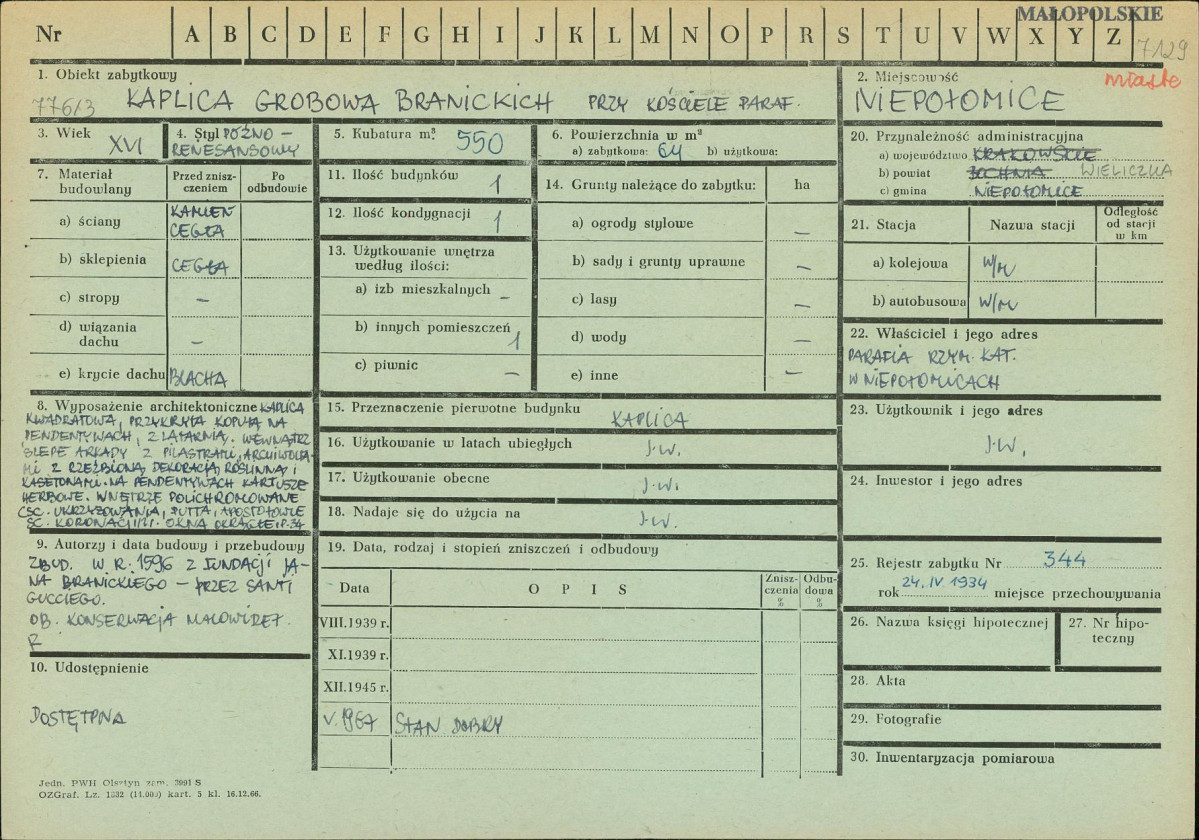 MAŁOPOLSKIE
Nr A B C D E F G H I J K L M N O P R S T U V W X Y Z
7129
1. Obiekt zabytkowy
776/3 KAPLICA GROBOWA BRANICKICH PRZY KOŚCIELE PARAF.
2. Miejscowość
miasto
NIEPOŁOMICE
3. Wiek XVI
4. Styl PÓŹNO-
RENESANSOWY
5. Kubatura m³ 550
6. Powierzchnia w m²
a) zabytkowa: 64 b) użytkowa:
7. Materiał
budowlany
Przed znisz-
czeniem
Po
odbudowie
a) ściany KAMIEŃ
CEGŁA
b) sklepienia CEGŁA
c) stropy –
d) wiązania
dachu –
e) krycie dachu BLACHA
11. Ilość budynków 1
12. Ilość kondygnacji 1
13. Użytkowanie wnętrza
według ilości:
a) izb mieszkalnych –
b) innych pomieszczeń 1
c) piwnic –
14. Grunty należące do zabytku: ha
a) ogrody stylowe –
b) sady i grunty uprawne –
c) lasy –
d) wody –
e) inne –
20. Przynależność administracyjna
a) województwo KRAKOWSKIE
b) powiat BOCHNIA WIELICZKA
c) gmina NIEPOŁOMICE
21. Stacja Nazwa stacji Odległość
od stacji
w km
a) kolejowa W/M
b) autobusowa W/M
22. Właściciel i jego adres
PARAFIA RZYM. KAT.
W NIEPOŁOMICACH
8. Wyposażenie architektoniczne KAPLICA
KWADRATOWA, PRZYKRYTA KOPUŁĄ NA
PENDENTYWACH, Z LATARNIĄ. WEWNĄTRZ
ŚLEPE ARKADY Z PILASTRAMI, ARCHIWOLTA-
MI Z RZEŹBIONĄ DEKORACJĄ ROŚLINNĄ I
KASETONAMI. NA PENDENTYWACH KARTUSZE
HERBOWE. WNĘTRZE POLICHROMOWANE
(SC. UKRZYŻOWANIA, PUTTA, APOSTOŁOWIE
SC. KORONACJI OKNA OKRĄGŁE
15. Przeznaczenie pierwotne budynku KAPLICA
16. Użytkowanie w latach ubiegłych J.W.
17. Użytkowanie obecne J.W.
18. Nadaje się do użycia na J.W.
23. Użytkownik i jego adres
J.W.
24. Inwestor i jego adres
9. Autorzy i data budowy i przebudowy
ZBUD. W R. 1596 Z FUNDACJI JA-
NA BRANICKIEGO – PRZEZ SANTI
GUCCIEGO.
OB. KONSERWACJA MALOWIDEŁ.
R
10. Udostępnienie
DOSTĘPNA
19. Data, rodzaj i stopień zniszczeń i odbudowy
Data O P I S Znisz-
czenia
% Odbu-
dowa
%
VIII.1939 r.
XI.1939 r.
XII.1945 r.
V. 1967 STAN DOBRY
25. Rejestr zabytku Nr 344
rok 24. IV 1934 miejsce przechowywania
26. Nazwa księgi hipotecznej
27. Nr hipo-
teczny
28. Akta
29. Fotografie
30. Inwentaryzacja pomiarowa
Jedn. PWH Olsztyn zam. 3991 S
OZGraf. Lz. 1332 (11.000) kart. 5 kl. 16.12.66.